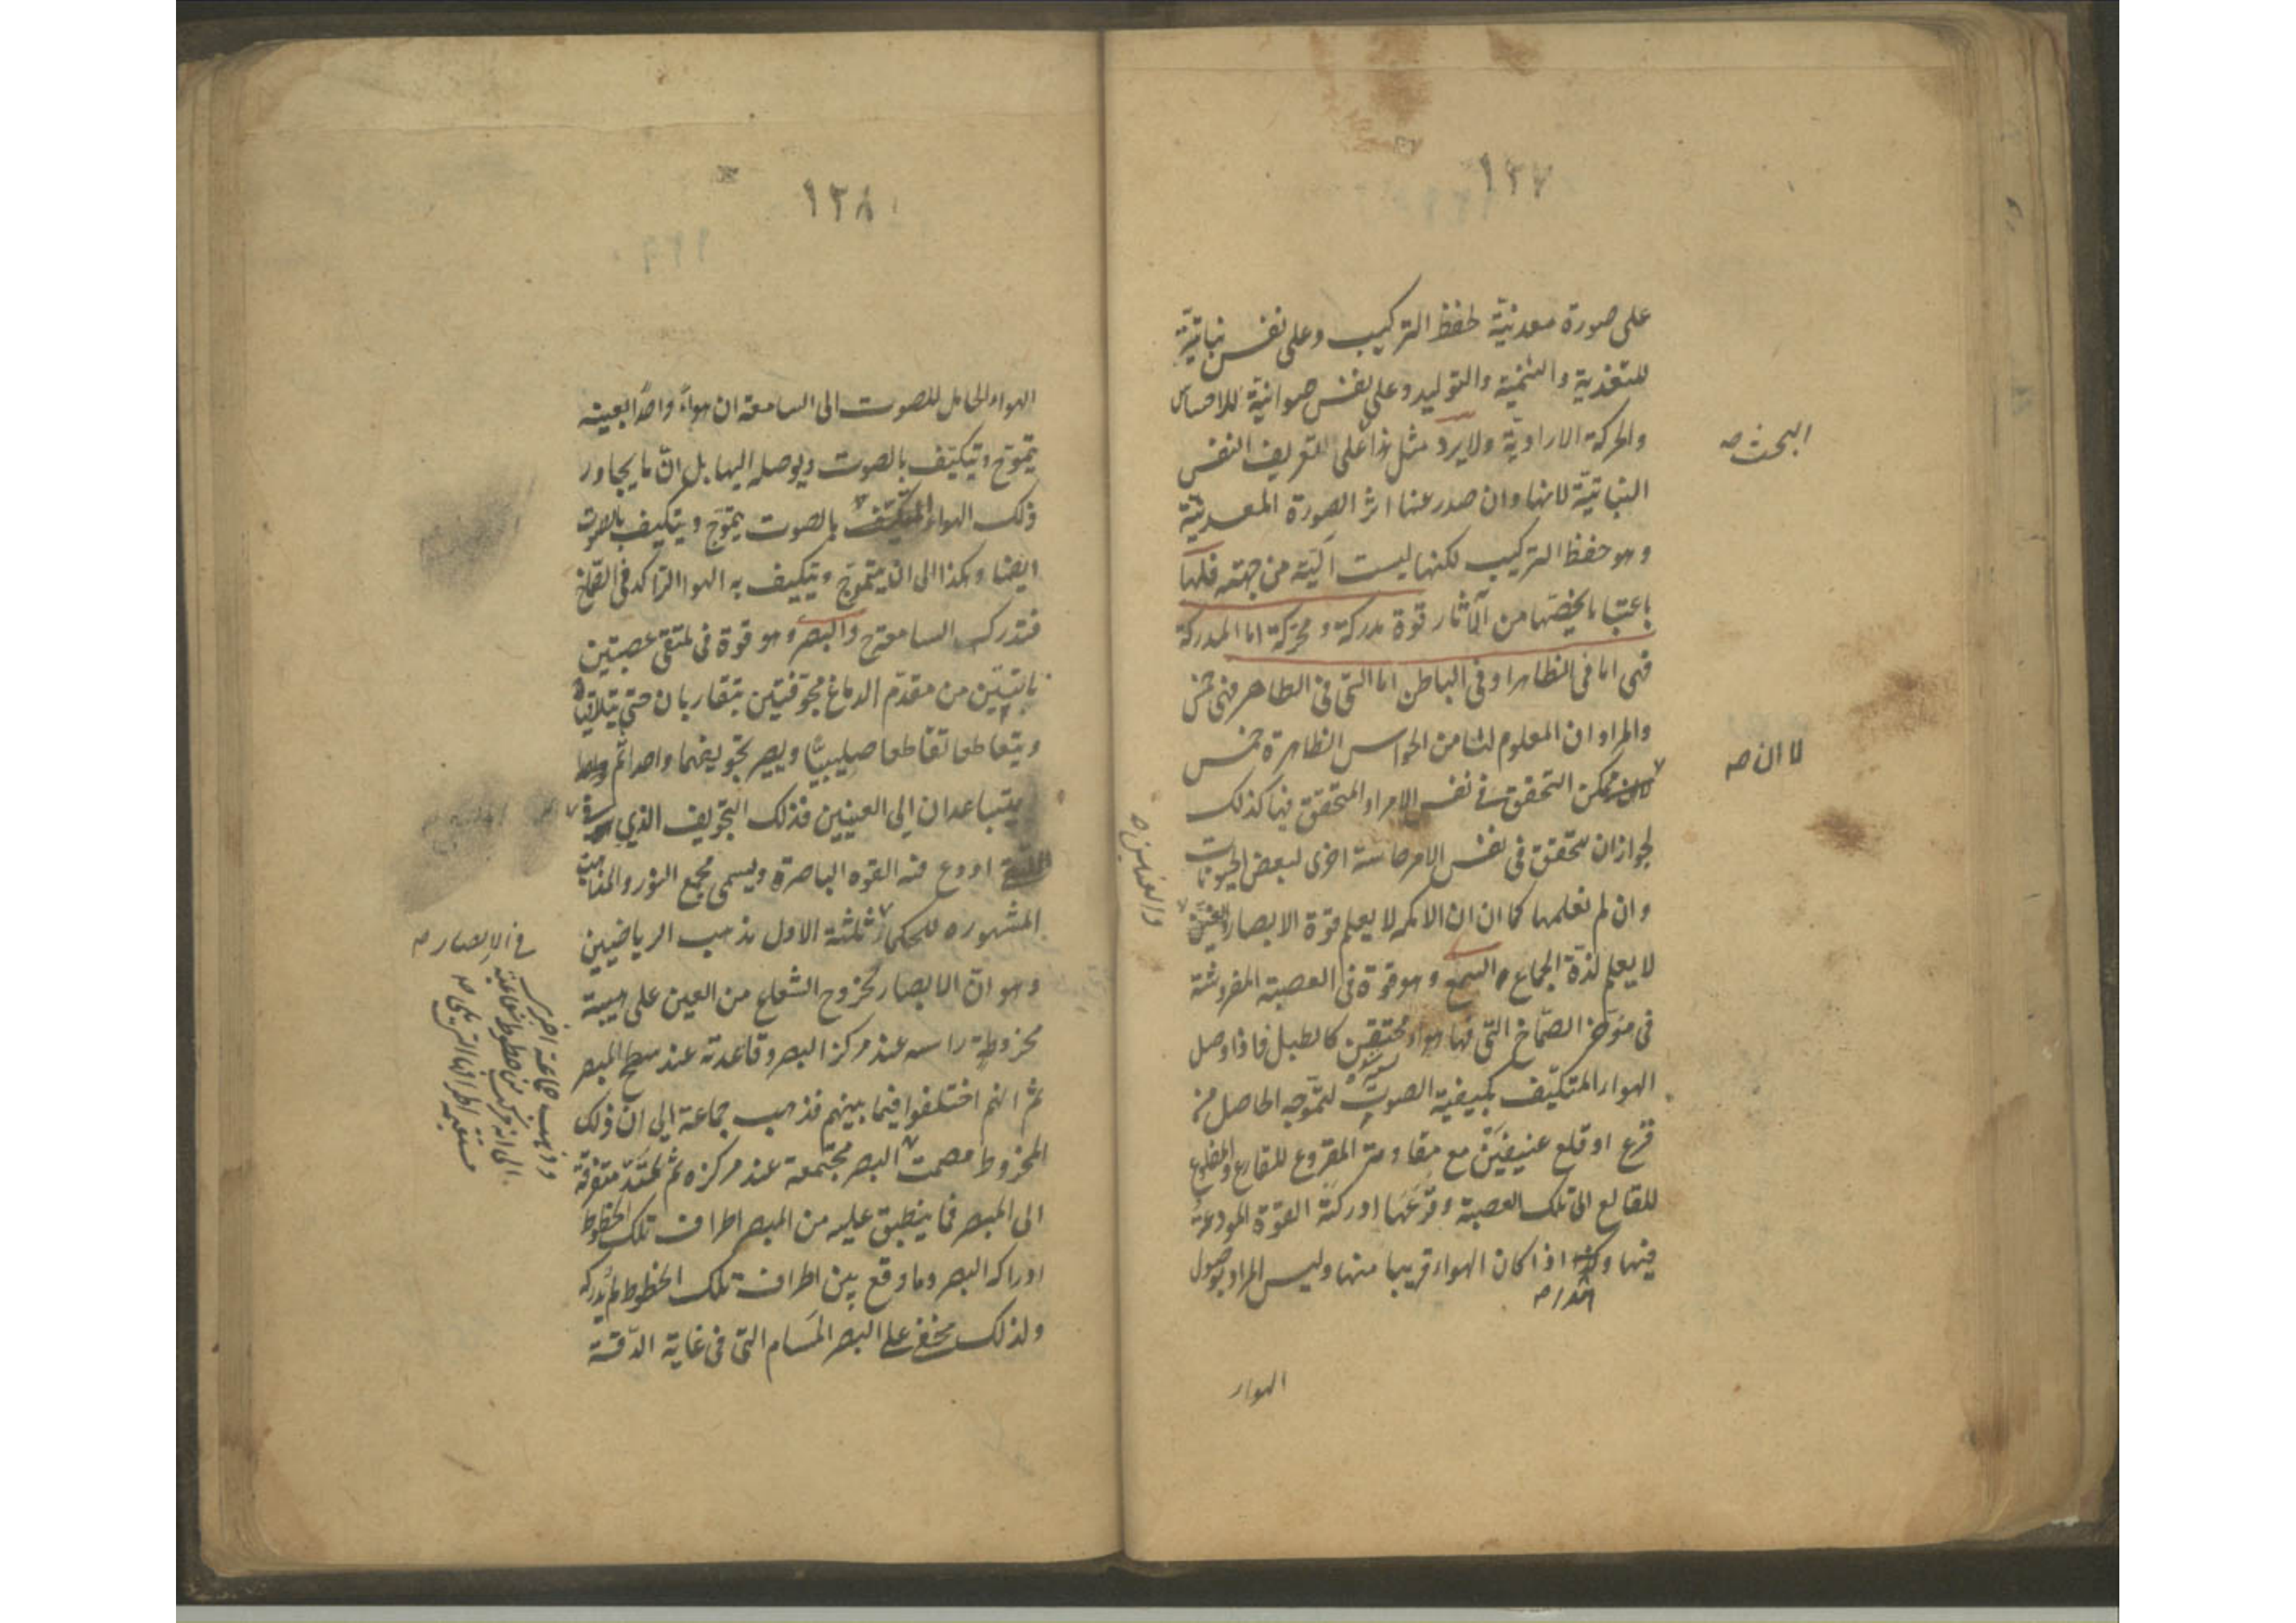 ١٢٧
على صورة معدنية لحفظ التركيب وعلى نفس نباتية
للتغذية والتنمية والتوليد وعلى نفس حيوانية للاحساس
والحركة الارادية ولا يرد مثل هذا على تعريف النفس
النباتية لانها وان صدر عنها اثر الصورة المعدنية
وهو حفظ التركيب لكنها ليست آلية من جهته فلها
باعتبار ما يخصها من الآثار قوة مدركة ومحركة اما المدركة
فهى اما فى الظاهر او فى الباطن اما التى فى الظاهر فهى خمس
والمراد ان المعلوم لنا من الحواس الظاهرة خمس
ممكن التحقق فى نفس الامر او المتحقق فيها كذلك
لجواز ان يتحقق فى نفس الامر حاسة اخرى لبعض الحيوانات
وان لم نعلمها كما ان الاكمه لا يعلم قوة الابصار والعنين
لا يعلم لذة الجماع السمع وهو قوة فى العصبة المفروشة
فى مؤخر الصماخ التى فيها هواء محتقن كالطبل فاذا وصل
الهواء المتكيف بكيفية الصوت لتموجه الحاصل من
قرع او قلع عنيفين مع مقاومة المقروع للقارع والمقلوع
للقالع الى تلك العصبة وقرعها ادركته القوة المودعة
فيها وكذا اذا كان الهواء قريبا منها وليس المراد بوصول
الهواء
البحث صه
لا ان صه
١٢٨
الهواء الحامل للصوت الى السامعة ان هواءً واحدًا بعينه
يتموج ويتكيف بالصوت ويوصله اليها بل ان ما يجاور
ذلك الهواء المتكيف بالصوت يتموج ويتكيف بالصوت
ايضا وهكذا الى ان يتموج ويتكيف به الهواء الراكد فى الصماخ
فتدركه السامعة ح والبصر وهو قوة فى ملتقى عصبتين
نابتتين من مقدم الدماغ مجوفتين تتقاربان حتى تتلاقيا
ويتقاطعا تقاطعا صليبيًا ويصير تجويفهما واحدا ثم
يتباعدان الى العينين فذلك التجويف الذى
اودع فيه القوة الباصرة ويسمى مجمع النور والمذاهب
المشهورة للحكماء ثلثة الاول مذهب الرياضيين
وهو ان الابصار بخروج الشعاع من العين على هيئة
مخروط راسه عند مركز البصر وقاعدته عند سطح المبصر
ثم انهم اختلفوا فيما بينهم فذهب جماعة الى ان ذلك
المخروط مصمت البصر مجتمعة عند مركزه ثم تمتد متفرقة
الى المبصر فما ينطبق عليه من المبصر اطراف تلك الخطوط
ادركه البصر وما وقع بين اطراف تلك الخطوط لم يدركه
ولذلك يخفى على البصر المسام التى فى غاية الدقة
فى الابصار صه
وذهب جماعة اخرى
الى انه مركب من خطوط شعاعية
مستقيمة اطرافها التى يلى صه